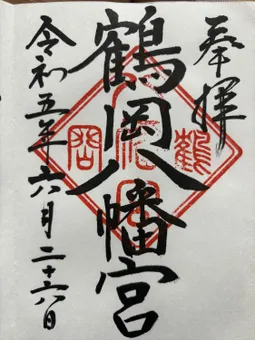 奉拝
鶴岡八幡宮
令和五年六月二十六日